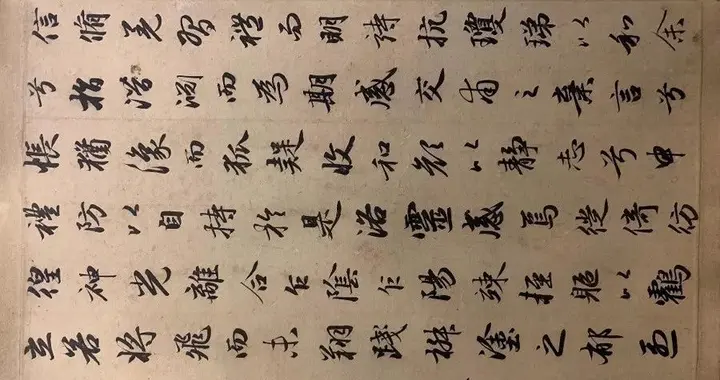 信脩羌習禮而明詩抗瓊珶以和余
兮指潛淵而為期感交甫之棄言兮
悵猶豫而狐疑收和顏以靜志兮申
禮防以自持於是洛靈感焉徙倚彷
徨神光離合乍陰乍陽竦輕軀以鶴
立若將飛而未翔踐椒塗之郁烈